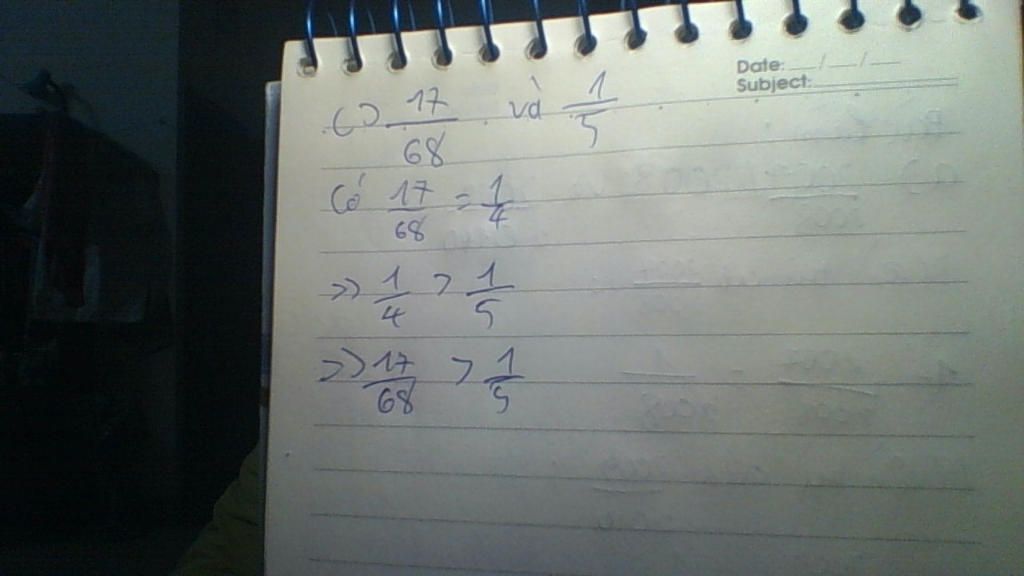 Date: __/__/__
Subject:
c) 17/68 và 1/5
Có 17/68 = 1/4
=> 1/4 > 1/5
=> 17/68 > 1/5